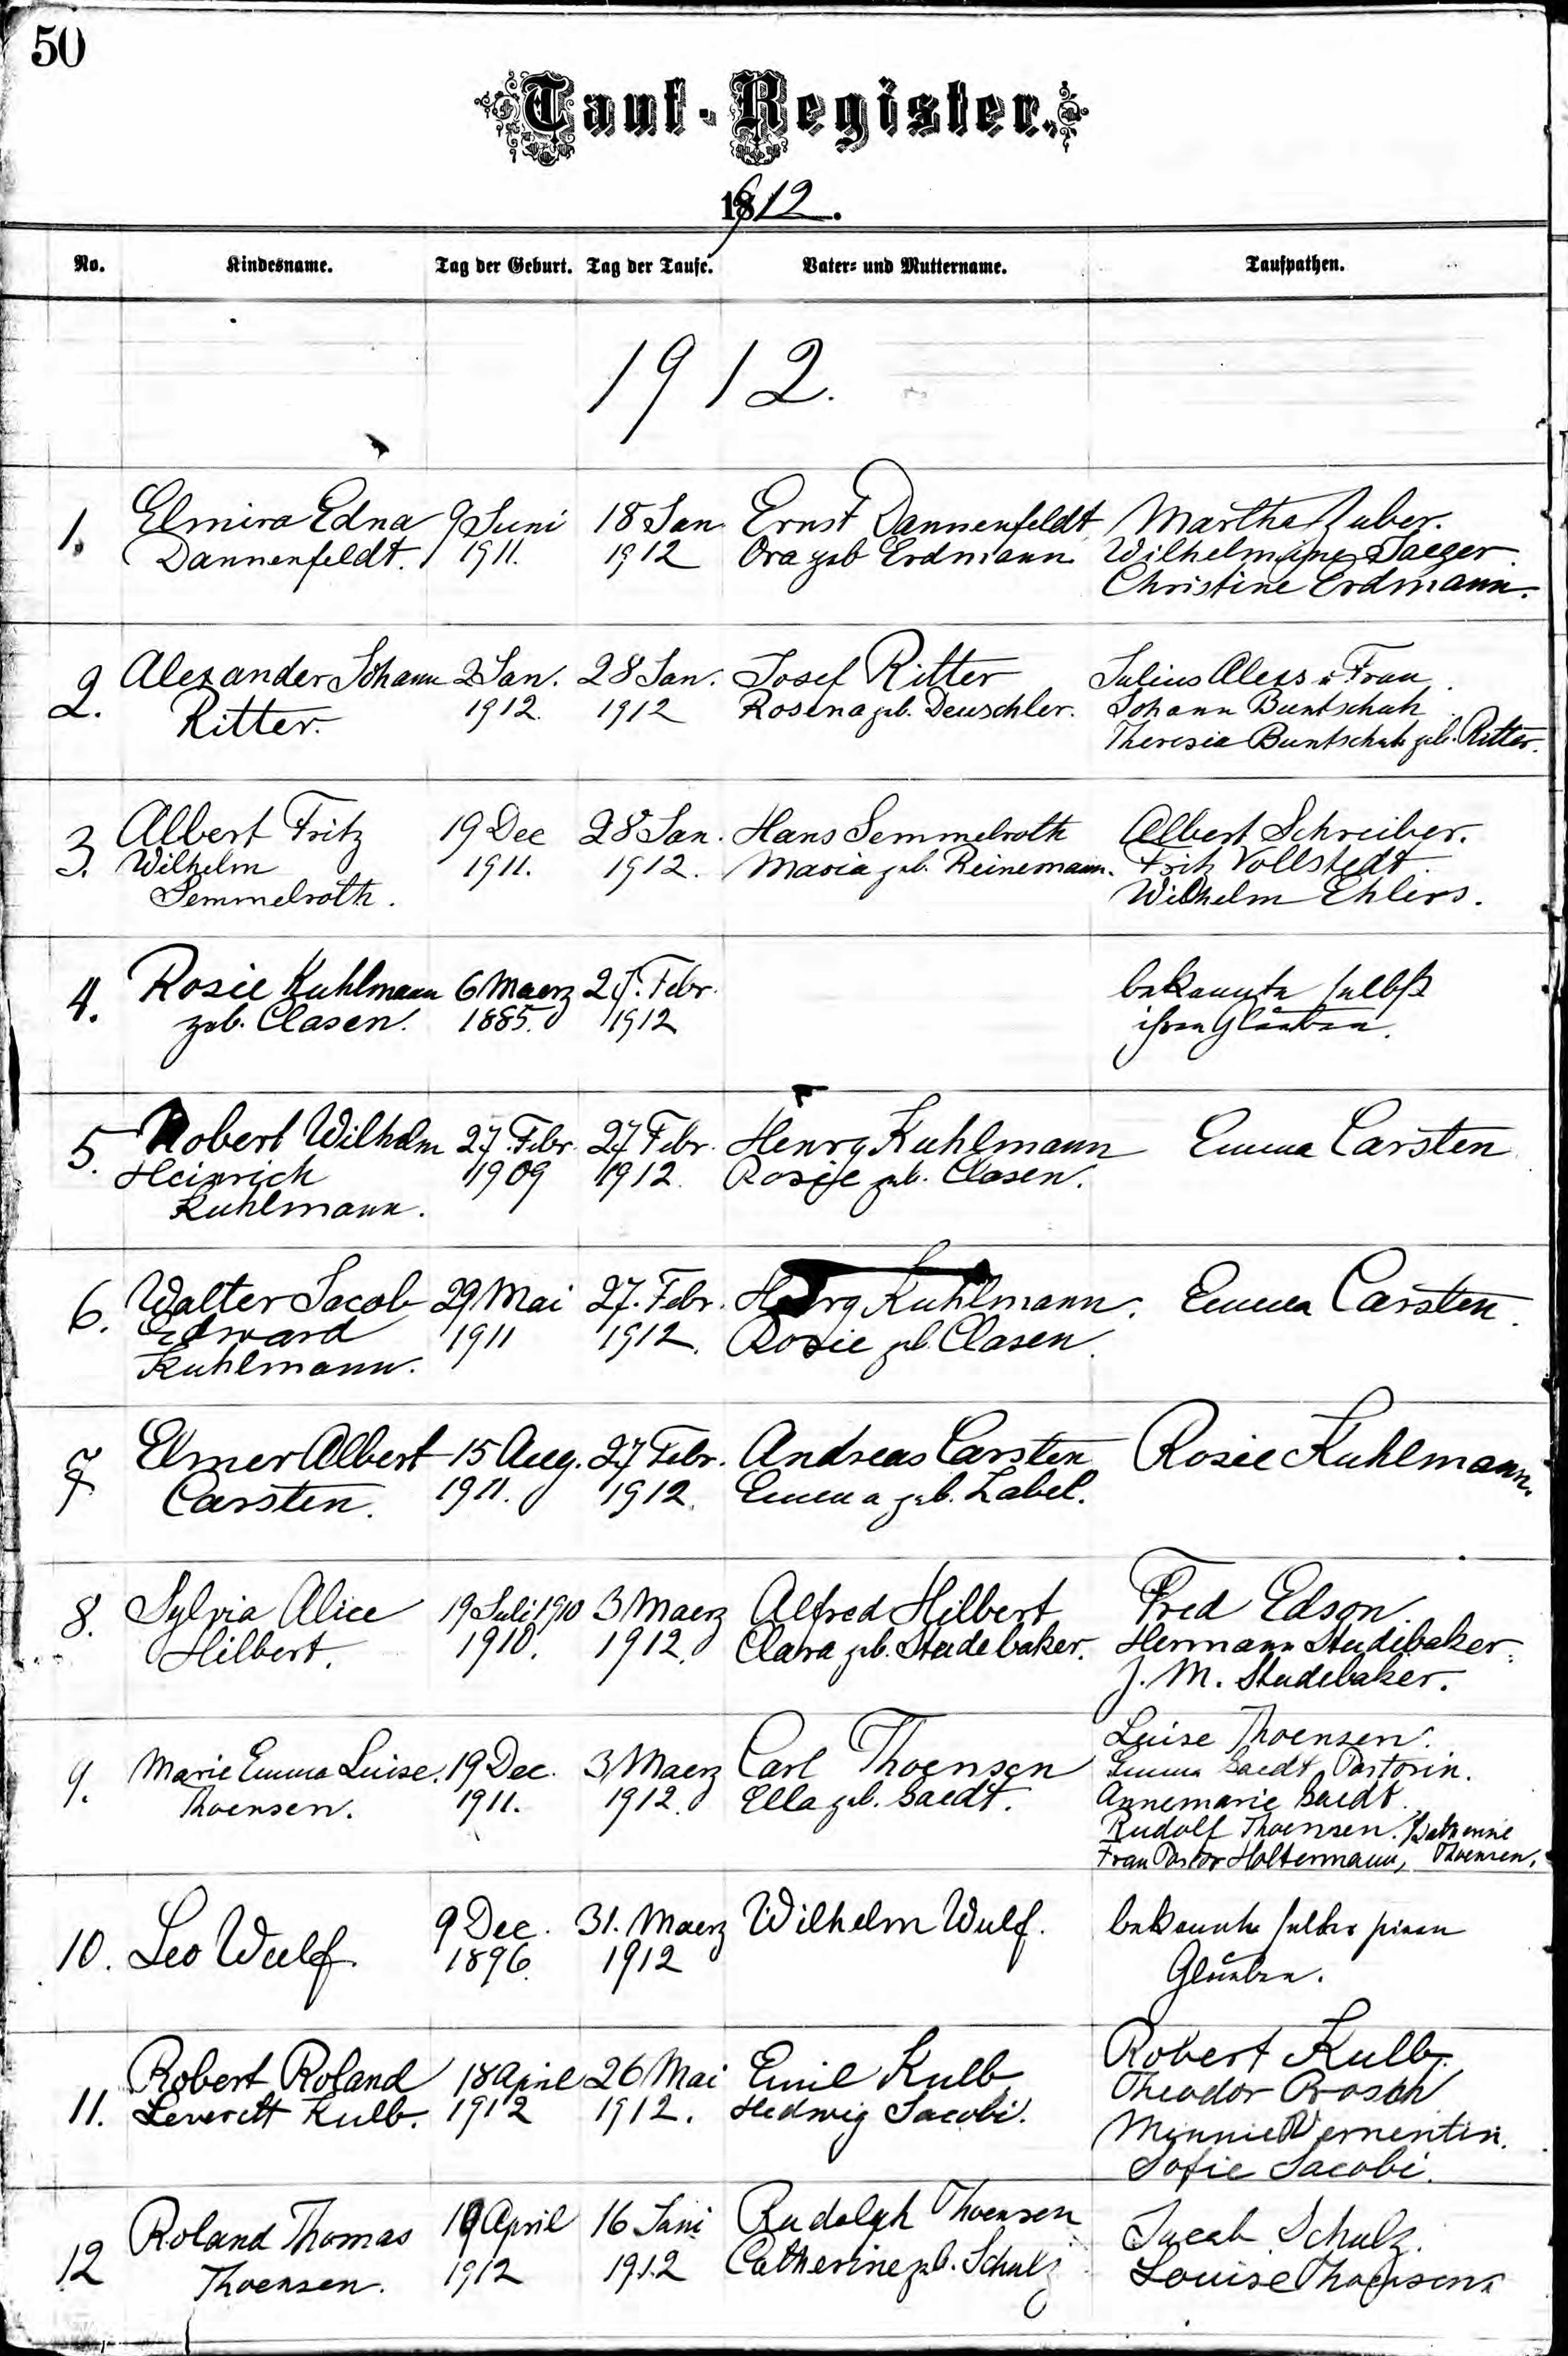 50
Tauf-Register.
1912.
No. Kindesname. Tag der Geburt. Tag der Taufe. Vater- und Muttername. Taufpathen.
1912.
1. Elmira Edna 9 Juni 18 Jan Ernst Dannenfeldt Martha Huber.
Dannenfeldt. 1911. 1912 Ora geb Erdmann. Wilhelmine Jaeger.
Christine Erdmann.
2. Alexander Johann 2 Jan. 28 Jan. Josef Ritter Julius Aless u Frau.
Ritter. 1912. 1912 Rosina geb. Deuschler. Johann Buntschuh
Theresia Buntschuh geb. Ritter.
3. Albert Fritz 19 Dec 28 Jan. Hans Semmelroth Albert Schreiber.
Wilhelm 1911. 1912. Maria geb. Reinemann. Fritz Vollstedt
Semmelroth. Wilhelm Ehlers.
4. Rosie Kuhlmann 6 Maerz 27. Febr. bekannte selbst
geb. Clasen. 1885. 1912 ihren Glauben.
5. Robert Wilhelm 27. Febr. 27 Febr. Henry Kuhlmann Emma Carsten
Heinrich 1909 1912. Rosie geb. Clasen.
Kuhlmann.
6. Walter Jacob 29 Mai 27. Febr. Henry Kuhlmann. Emma Carsten.
Edward 1911 1912. Rosie geb. Clasen.
Kuhlmann.
7 Elmer Albert 15 Aug. 27 Febr. Andreas Carsten Rosie Kuhlmann.
Carsten. 1911. 1912. Emma geb. Zabel.
8. Sylvia Alice 19 Juli 1910 3 Maerz Alfred Hilbert Fred Edson.
Hilbert. 1910. 1912. Clara geb. Studebaker. Hermann Studebaker.
J. M. Studebaker.
Luise Thoensen.
9. Marie Emma Luise. 19 Dec. 3 Maerz Carl Thoensen Emma Saedt, Pastorin.
Thoensen. 1911. 1912. Ella geb. Saedt. Annemarie Saedt.
Rudolf Thoensen. Catherine
Frau Pastor Holtermann, Thoensen.
10. Leo Wulf. 9 Dec. 31. Maerz Wilhelm Wulf. bekannte selber seinen
1896. 1912 Glauben.
Robert Kulb.
11. Robert Roland 18 April 26 Mai Emil Kulb Theodor Brosch
Leveritt Kulb. 1912 1912. Hedwig Jacobi. Minnie Wernentin.
Sofie Jacobi.
12 Roland Thomas April 16 Juni Rudolph Thoensen Jacob Schulz.
Thoensen. 1912 1912 Catherine geb. Schulz Louise Thoensen.